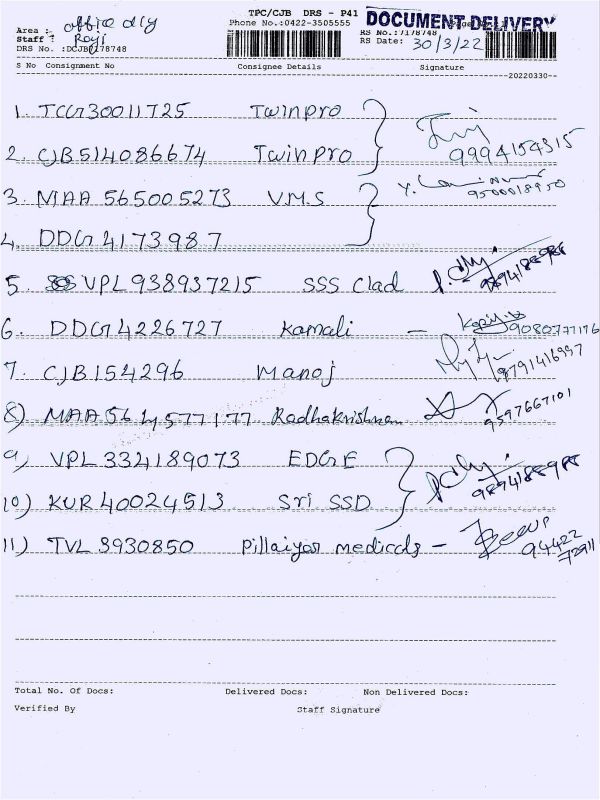 TPC/CJB DRS - P41 DOCUMENT DELIVERY
Area : office dly Phone No.:0422-3505555
Staff : Royi RS No.:7178748
DRS No. :DCJB7178748 RS Date: 30/3/22
S No Consignment No Consignee Details Signature
20220330--
1. TCG30011725 Twinpro
9994154315
2. CJB514086674 Twinpro
3. MAA 565005273 V.M.S
9500018950
4. DDG4173987
5. VPL938937215 SSS Clad 9894188988
6. DDG4226727 Kamali - 9080777176
7. CJB154296 Manoj 9791416997
8) MAA564577177 Radhakrishnan 9597667101
9) VPL334189073 EDGE
9894188988
10) KUR40024513 Sri SSD
11) TVL3930850 Pillaiyar medicals - 94422
72911
Total No. Of Docs: Delivered Docs: Non Delivered Docs:
Verified By Staff Signature